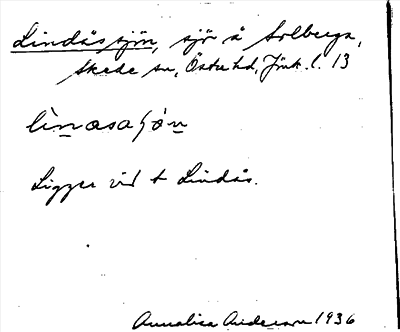 Lindåssjön, sjö å Solberga,
Skede sn, Östra hd, Jönk. l. 13
Ligger vid t Lindås.
Annalisa Anderson 1936